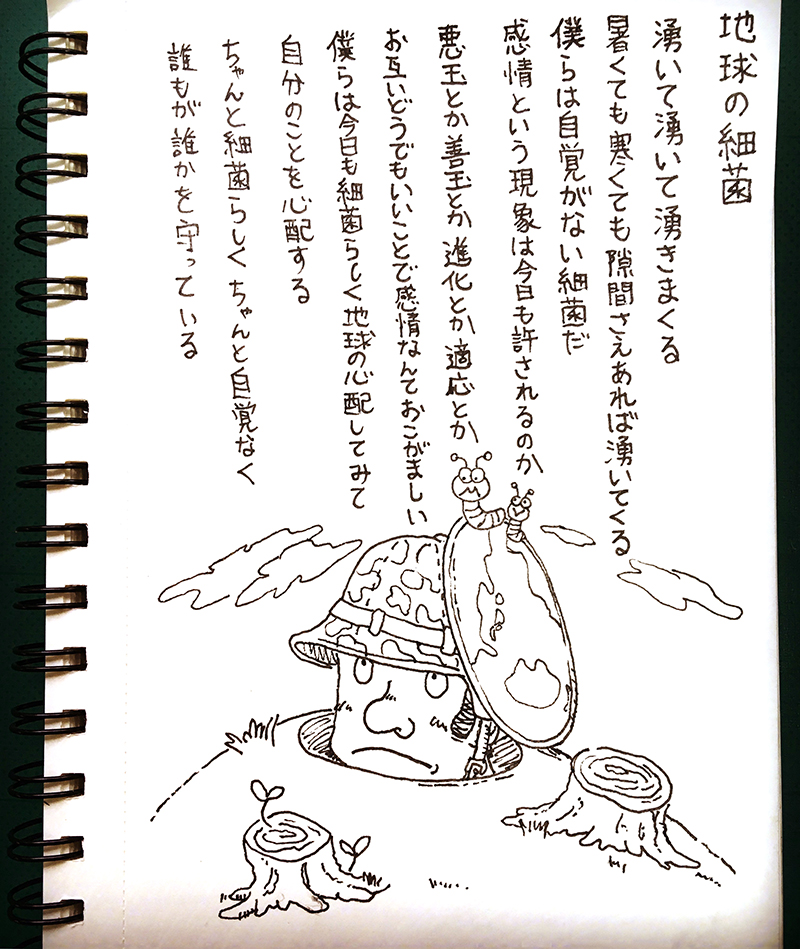 地球の細菌
湧いて湧いて湧きまくる
暑くても寒くても隙間さえあれば湧いてくる
僕らは自覚がない細菌だ
感情という現象は今日も許されるのか
悪玉とか善玉とか進化とか適応とか
お互いどうでもいいことで感情なんておこがましい
僕らは今日も細菌らしく地球の心配してみて
自分のことを心配する
ちゃんと細菌らしくちゃんと自覚なく
誰もが誰かを守っている